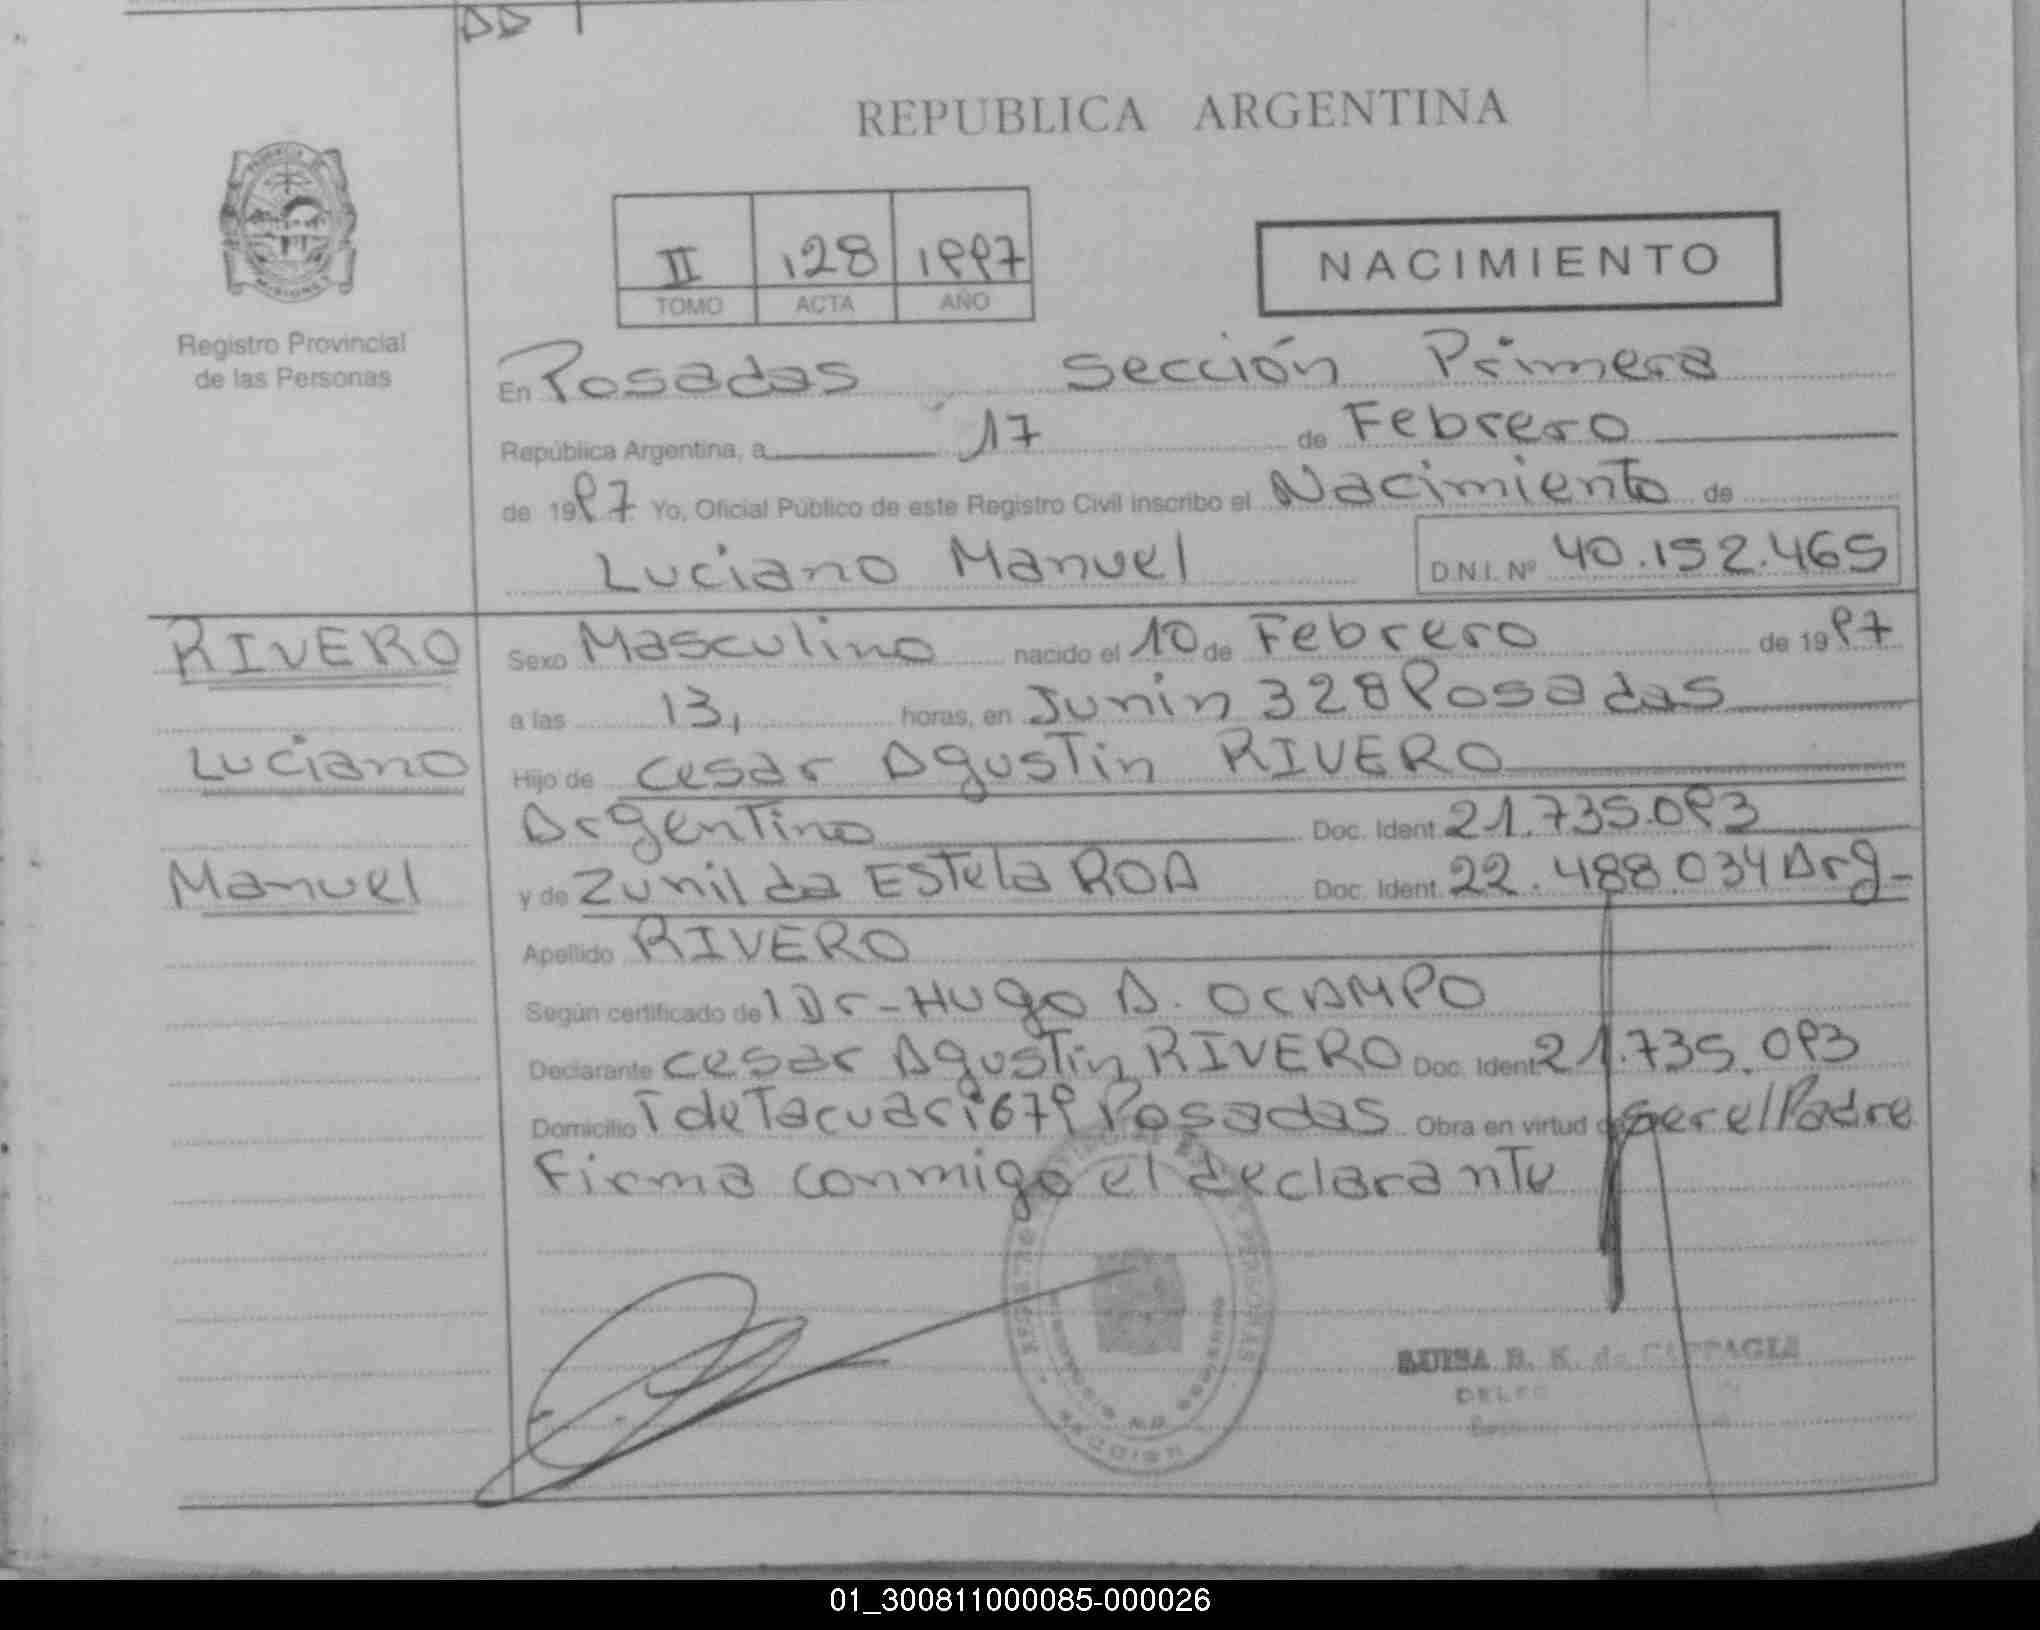 REPUBLICA ARGENTINA
II 128 1997
TOMO ACTA AÑO
NACIMIENTO
MISIONES
Registro Provincial
de las Personas
En Posadas Sección Primera
República Argentina, a 17 de Febrero
de 1997 Yo, Oficial Público de este Registro Civil inscribo el Nacimiento de
Luciano Manuel D.N.I. Nº 40.152.465
RIVERO
Luciano
Manuel
Sexo Masculino nacido el 10 de Febrero de 1997
a las 13, horas, en Junin 328 Posadas
Hijo de Cesar Agustin RIVERO
Argentino Doc. Ident. 21.735.093
y de Zunilda Estela ROA Doc. Ident. 22.488.034 Arg-
Apellido RIVERO
Según certificado del Dr-Hugo A. OCAMPO
Declarante Cesar Agustin RIVERO Doc. Ident 21.735.093
Domicilio T de Tacuari 679 Posadas Obra en virtud de ser el Padre
Firma conmigo el declarante
B. K. de
01_300811000085-000026